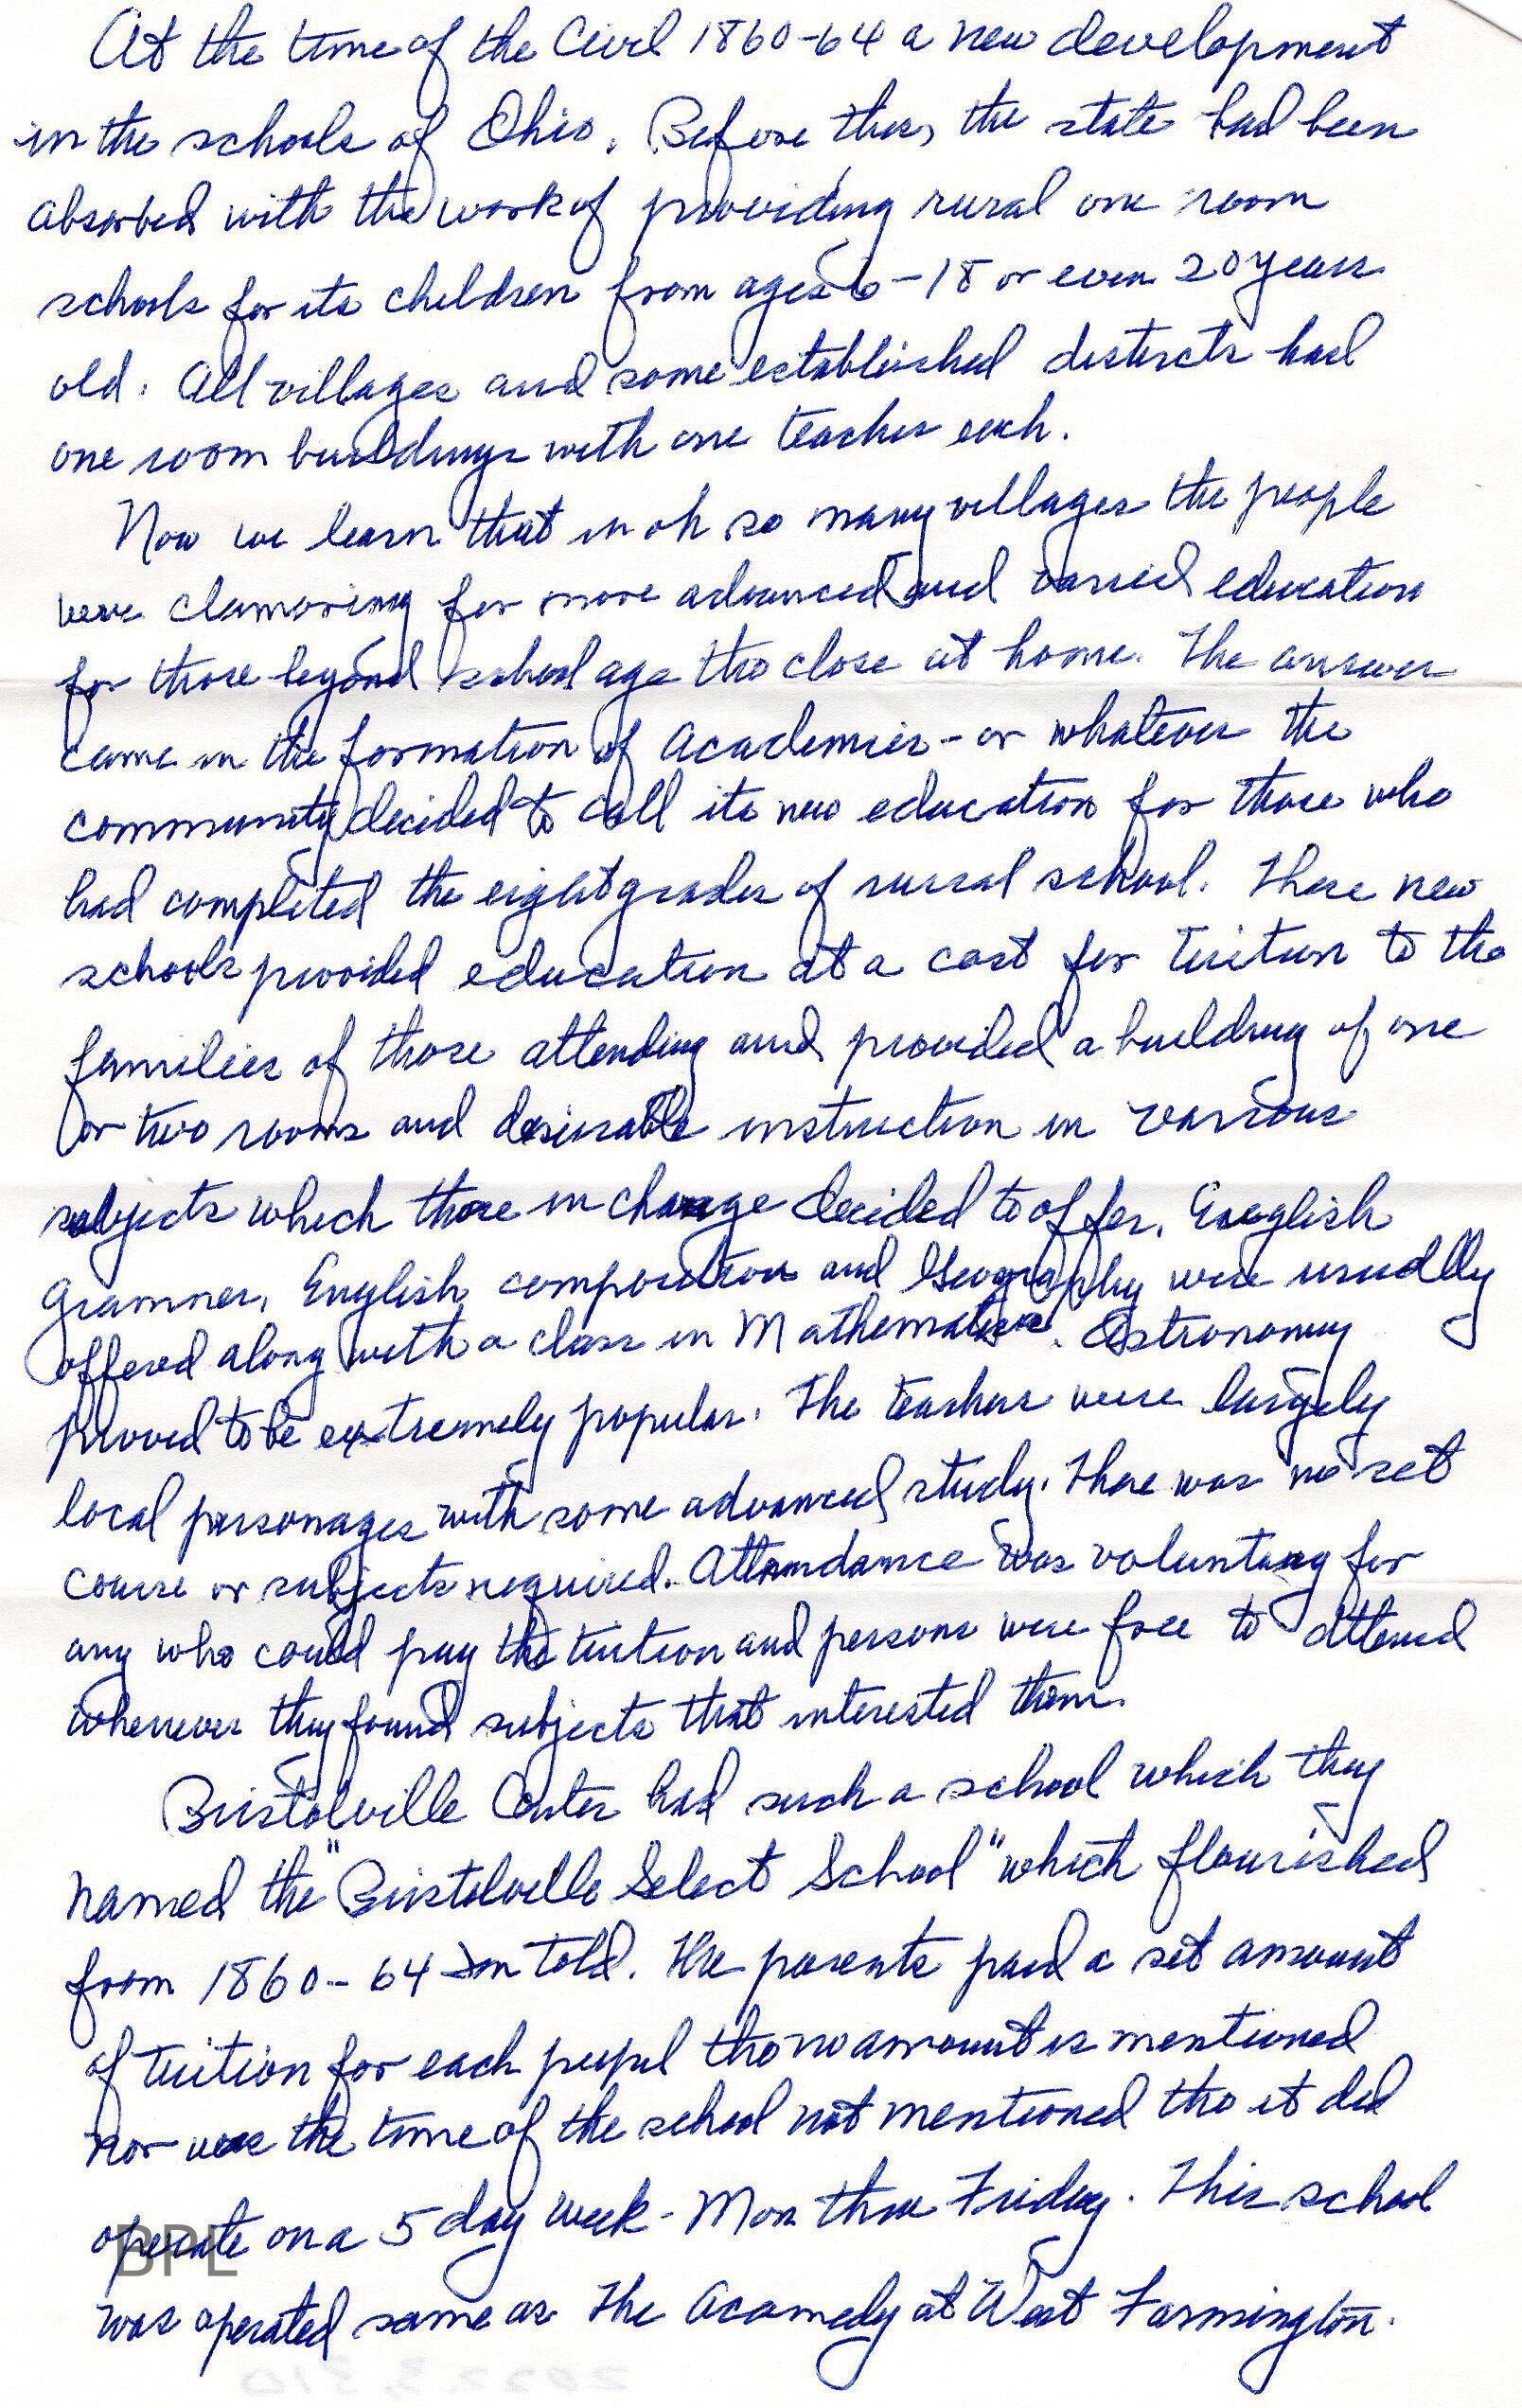 At the time of the Civil 1860-64 a new development
in the schools of Ohio. Before then, the state had been
absorbed with the work of providing rural one room
schools for its children from ages 6-18 or even 20 years
old. All villages and some established districts had
one room buildings with one teacher each.
Now we learn that in oh so many villages the people
were clamoring for more advanced and varied education
for those beyond school age tho close at home. The answer
came in the formation of Academies - or whatever the
community decided to call its new education for those who
had completed the eight grades of rural school. These new
schools provided education at a cost for tuition to the
families of those attending and provided a building of one
or two rooms and desirable instruction in various
subjects which those in charge decided to offer. English
Grammer, English composition and Geography were usually
offered along with a class in Mathematics. Astronomy
proved to be extremely popular. The teachers were largely
local personages with some advanced study. There was no set
course or subjects required. Attendance was voluntary for
any who could pay the tuition and persons were free to attend
whenever they found subjects that interested them.
Bristolville Center had such a school which they
named the "Bristolville Select School" which flourished
from 1860-64 Im told. The parents paid a set amount
of tuition for each pupil tho no amount is mentioned
nor was the time of the school not mentioned tho it did
operate on a 5 day week - Mon thru Friday. This school
BPL
was operated same as the Acamedy at West Farmington.